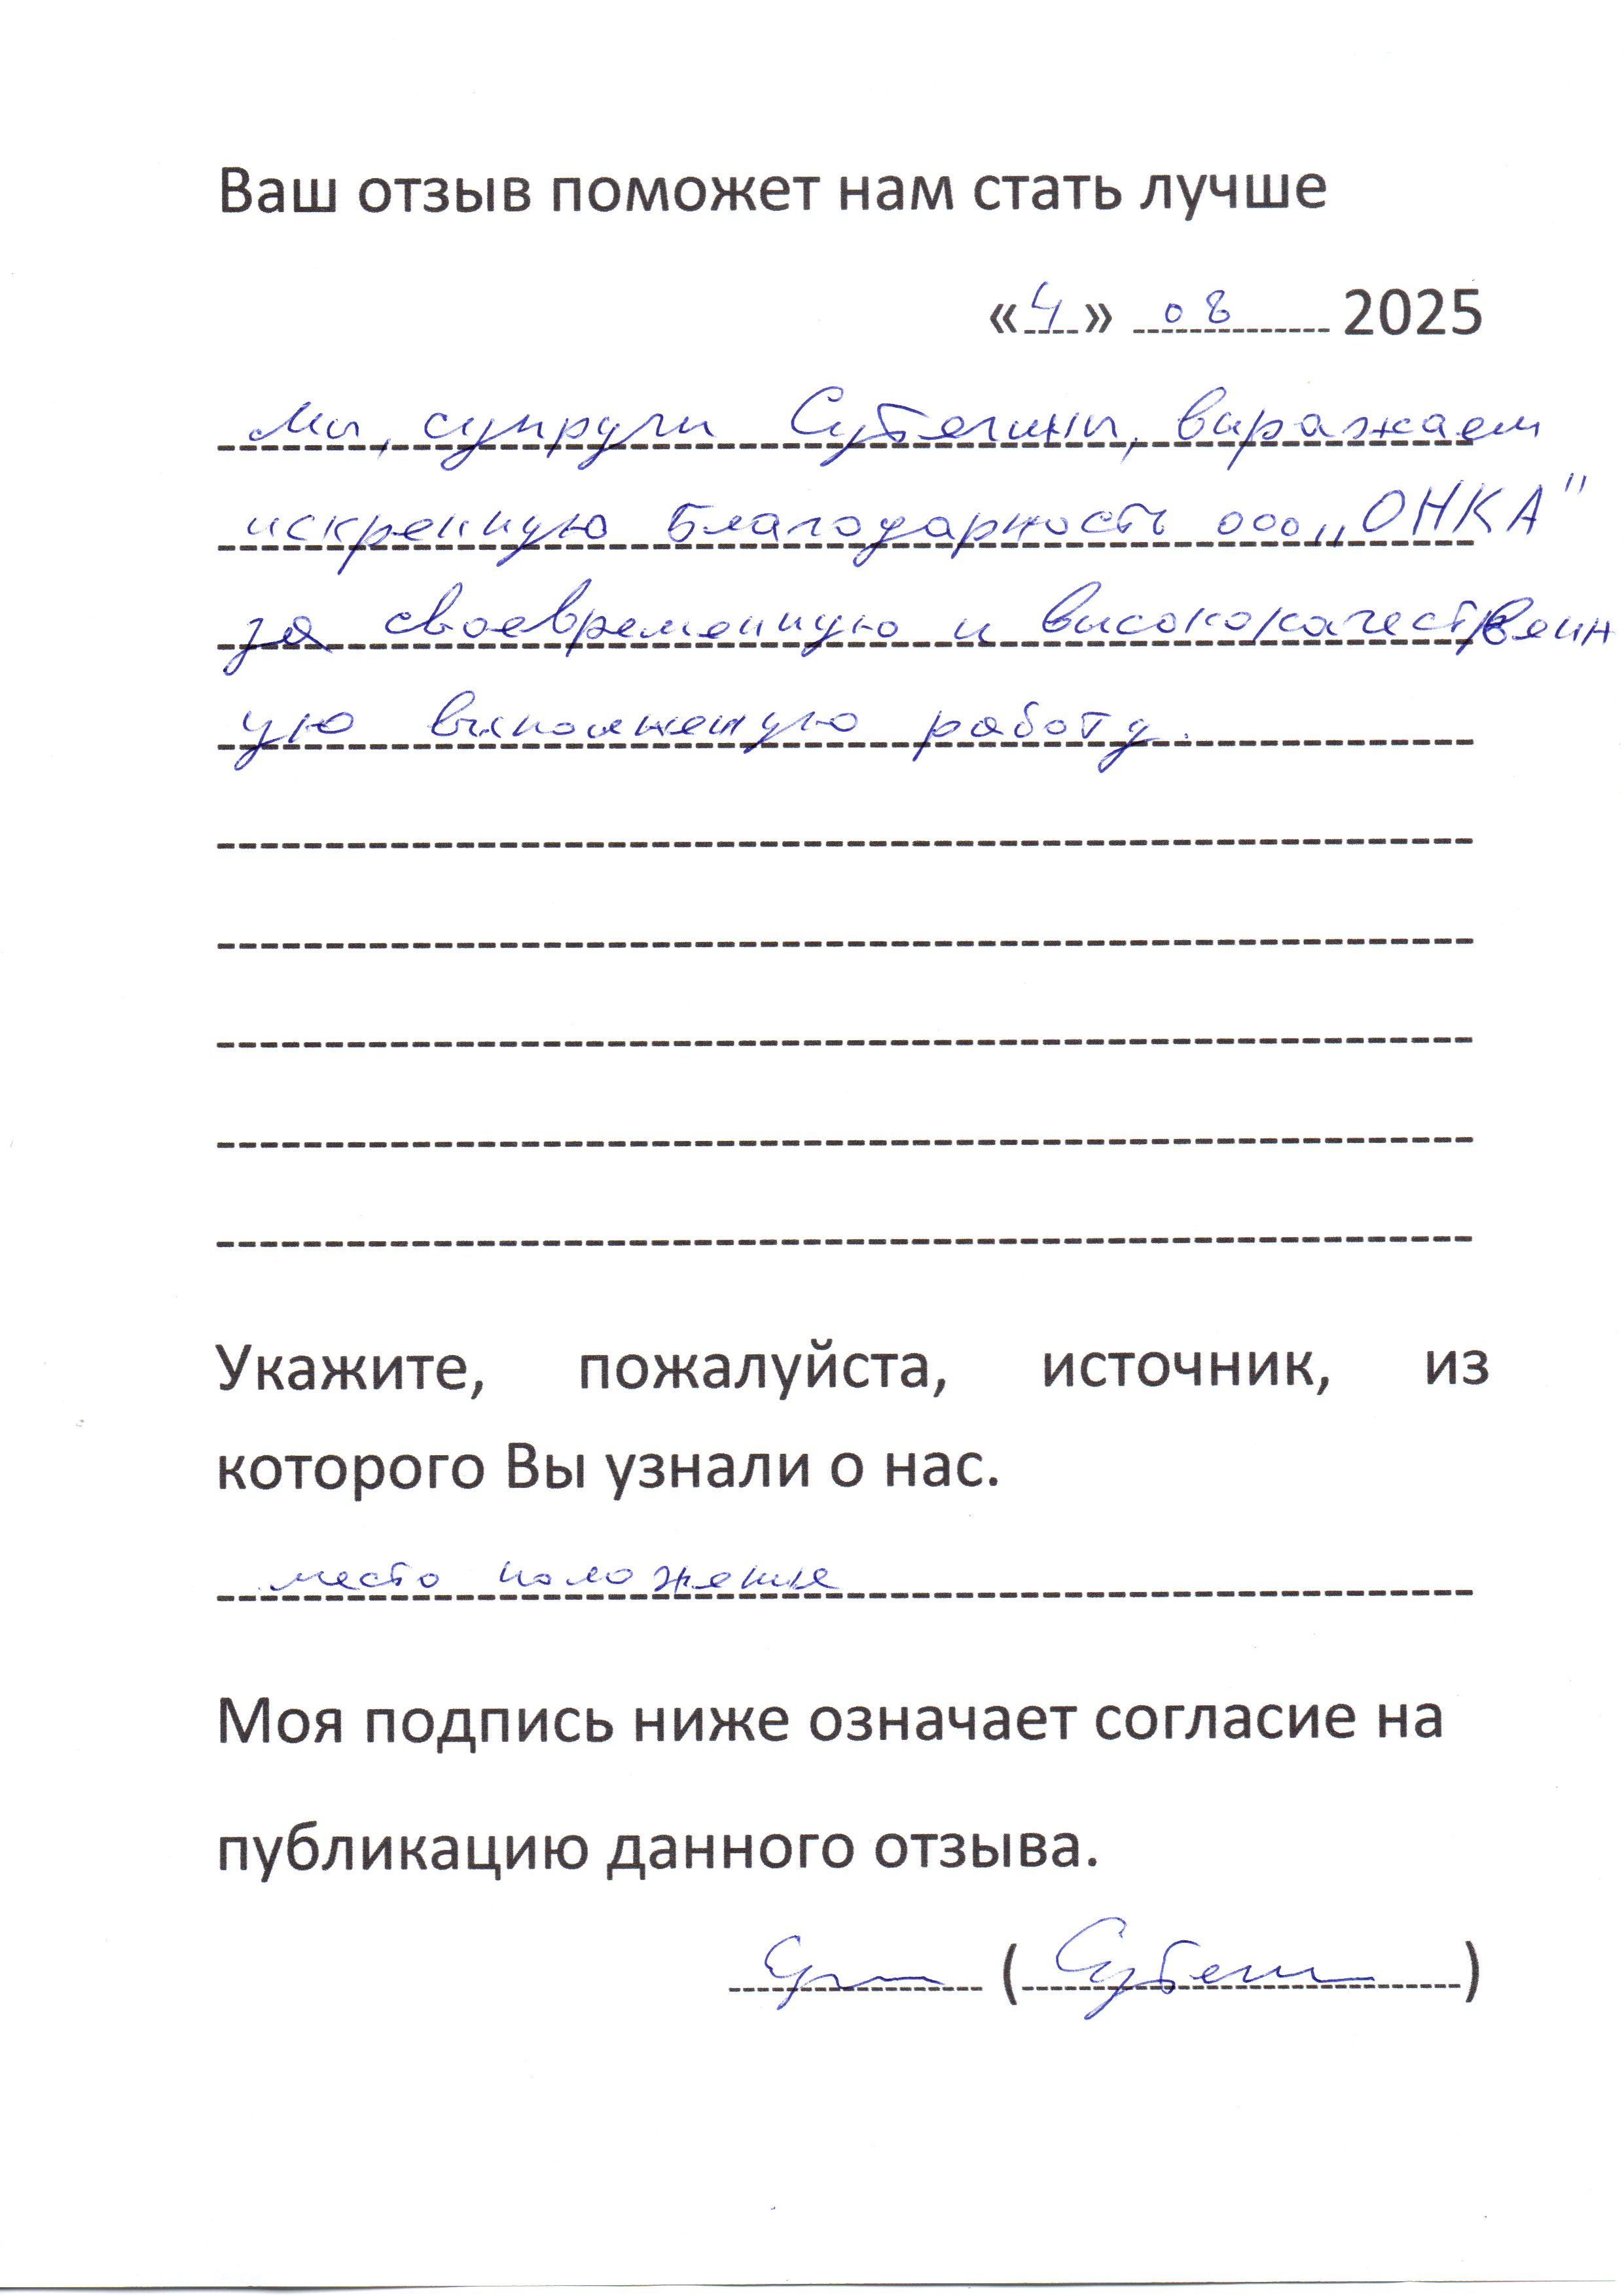 Ваш отзыв поможет нам стать лучше
«4» 08 2025
Мы, супруги Субегины, выражаем
искренную благодарность ооо „ОНКА"
за своевременную и высококачественн
ую выполненую работу.
Укажите, пожалуйста, источник, из
которого Вы узнали о нас.
место положение
Моя подпись ниже означает согласие на
публикацию данного отзыва.
( )